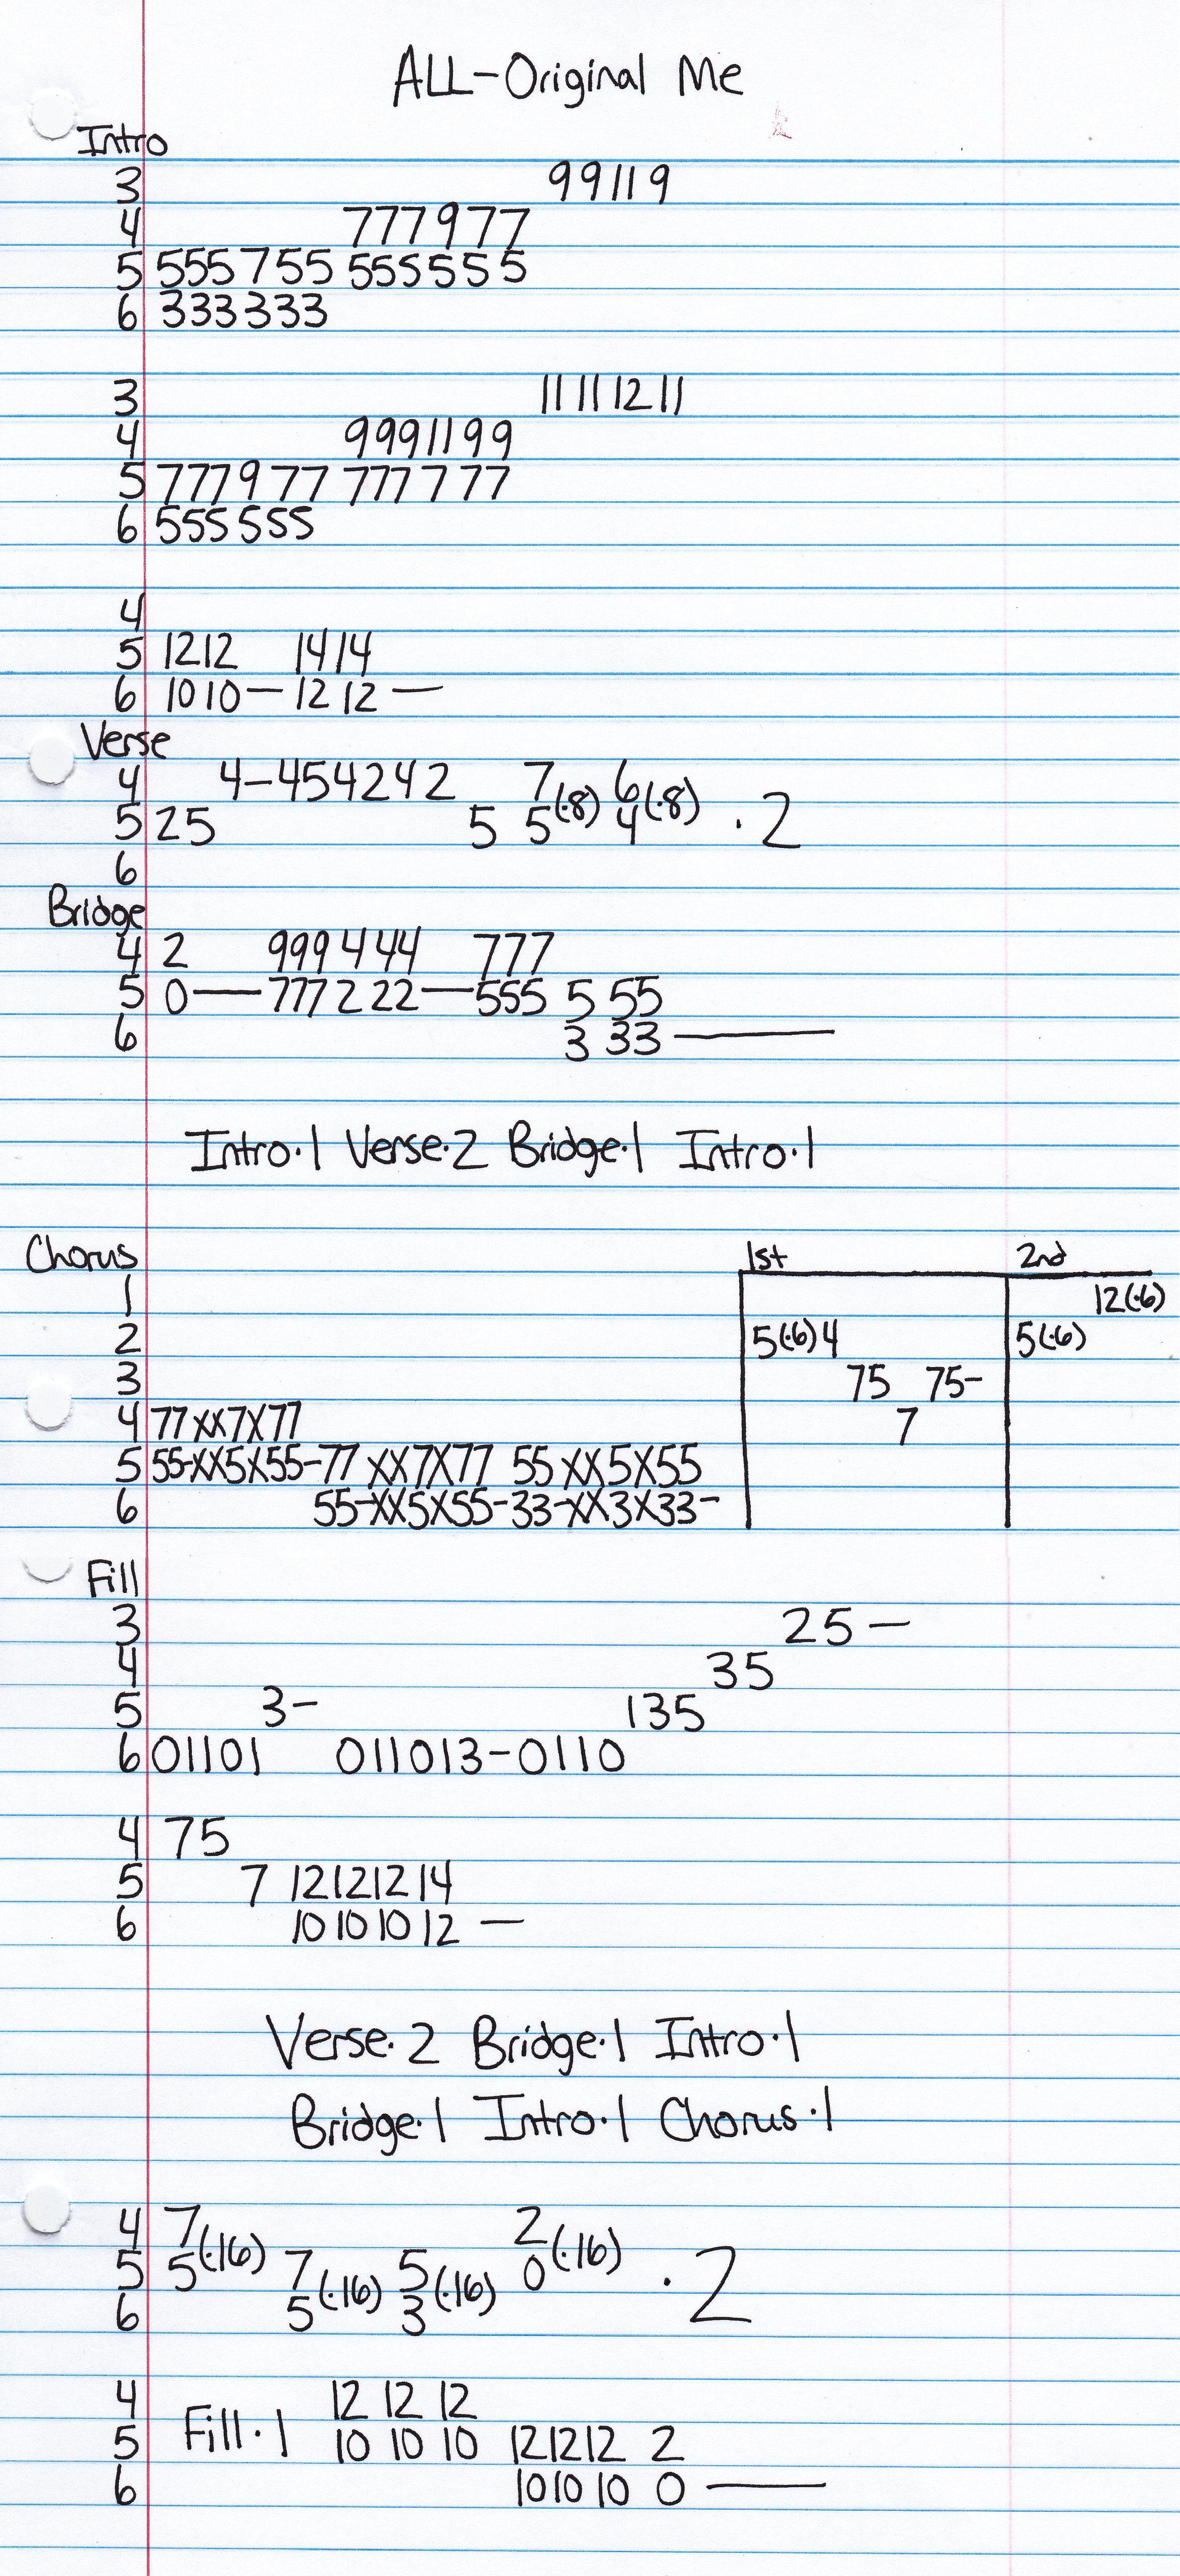 ALL-Original Me
Intro
3 99119
4 777977
5 555755 555555
6 333333
3 11 11 12 11
4 9991199
5 777977 777777
6 555555
4
5 1212 1414
6 1010— 12 12 —
Verse
4 4-454242 7 6
5 25 5 5(·8) 4(·8) ·2
6
Bridge
4 2 999 444 777
5 0—777222—555 5 55
6 3 33 —
Intro·1 Verse·2 Bridge·1 Intro·1
Chorus 1st 2nd
1 12(·6)
2 5(·6)4 5(·6)
3 75 75-
4 77XX7X77 7
5 55-XX5X55-77 XX7X77 55 XX5X55
6 55-XX5X55-33-XX3X33-
Fill
3 25—
4 35
5 3- 135
6 01101 011013-0110
4 75
5 7 12121214
6 10101012 —
Verse·2 Bridge·1 Intro·1
Bridge·1 Intro·1 Chorus·1
4 7 2
5 5(·16) 7 5 0(·16) ·2
6 5(·16) 3(·16)
4 12 12 12
5 Fill·1 10 10 10 121212 2
6 101010 0 —